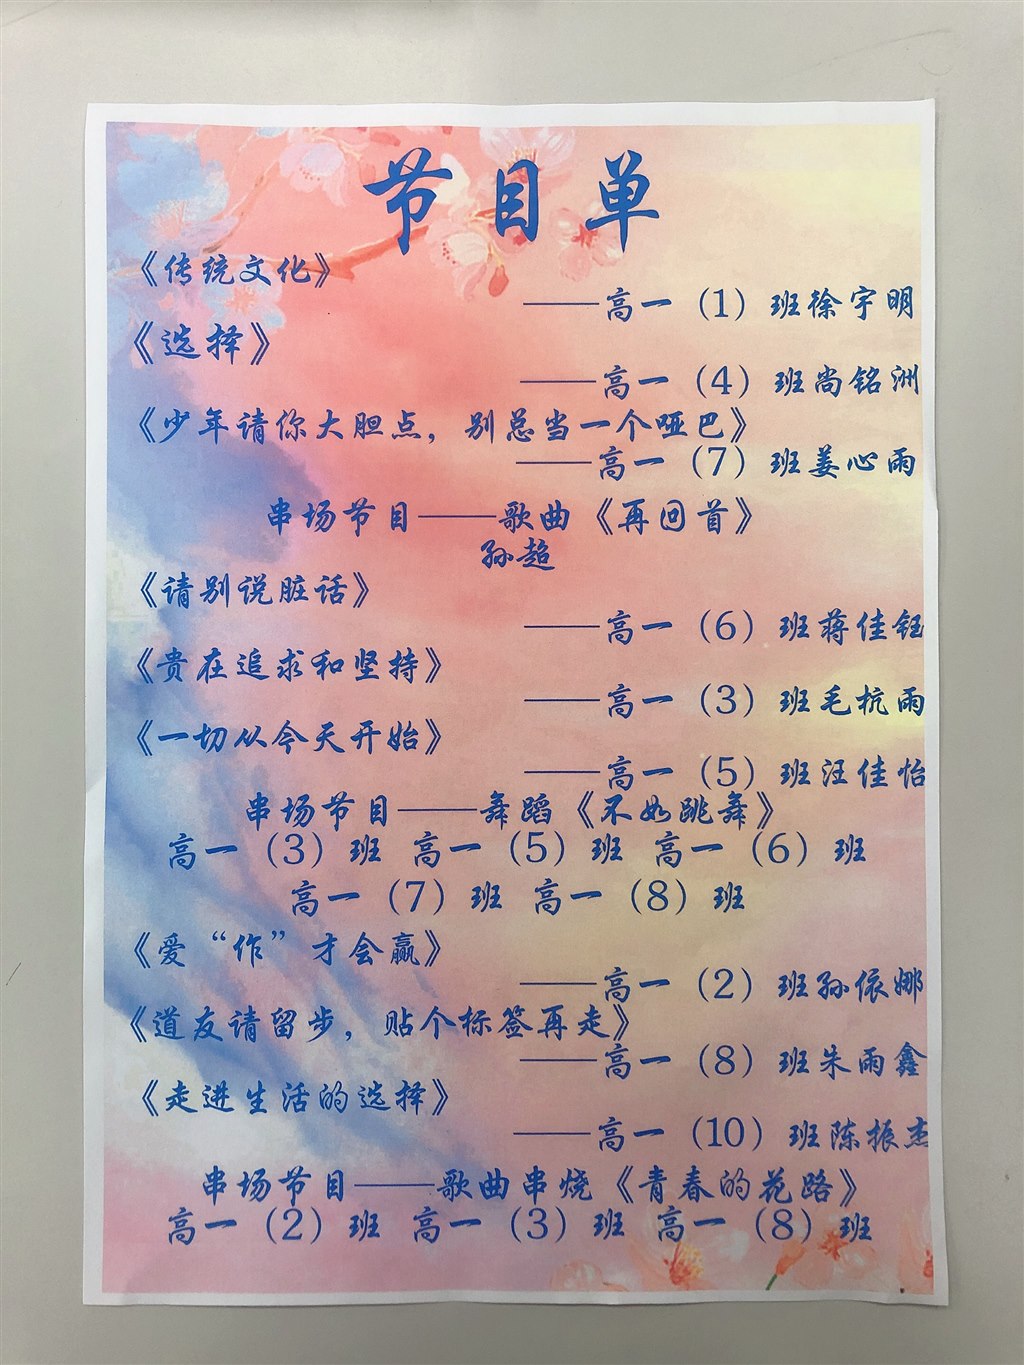 节目单
《传统文化》
——高一（1）班徐宇明
《选择》
——高一（4）班尚铭洲
《少年请你大胆点，别总当一个哑巴》
——高一（7）班姜心雨
串场节目——歌曲《再回首》
孙超
《请别说脏话》
——高一（6）班蒋佳钰
《贵在追求和坚持》
——高一（3）班毛杭雨
《一切从今天开始》
——高一（5）班汪佳怡
串场节目——舞蹈《不如跳舞》
高一（3）班 高一（5）班 高一（6）班
高一（7）班 高一（8）班
《爱“作”才会赢》
——高一（2）班孙依娜
《道友请留步，贴个标签再走》
——高一（8）班朱雨鑫
《走进生活的选择》
——高一（10）班陈振杰
串场节目——歌曲串烧《青春的花路》
高一（2）班 高一（3）班 高一（8）班